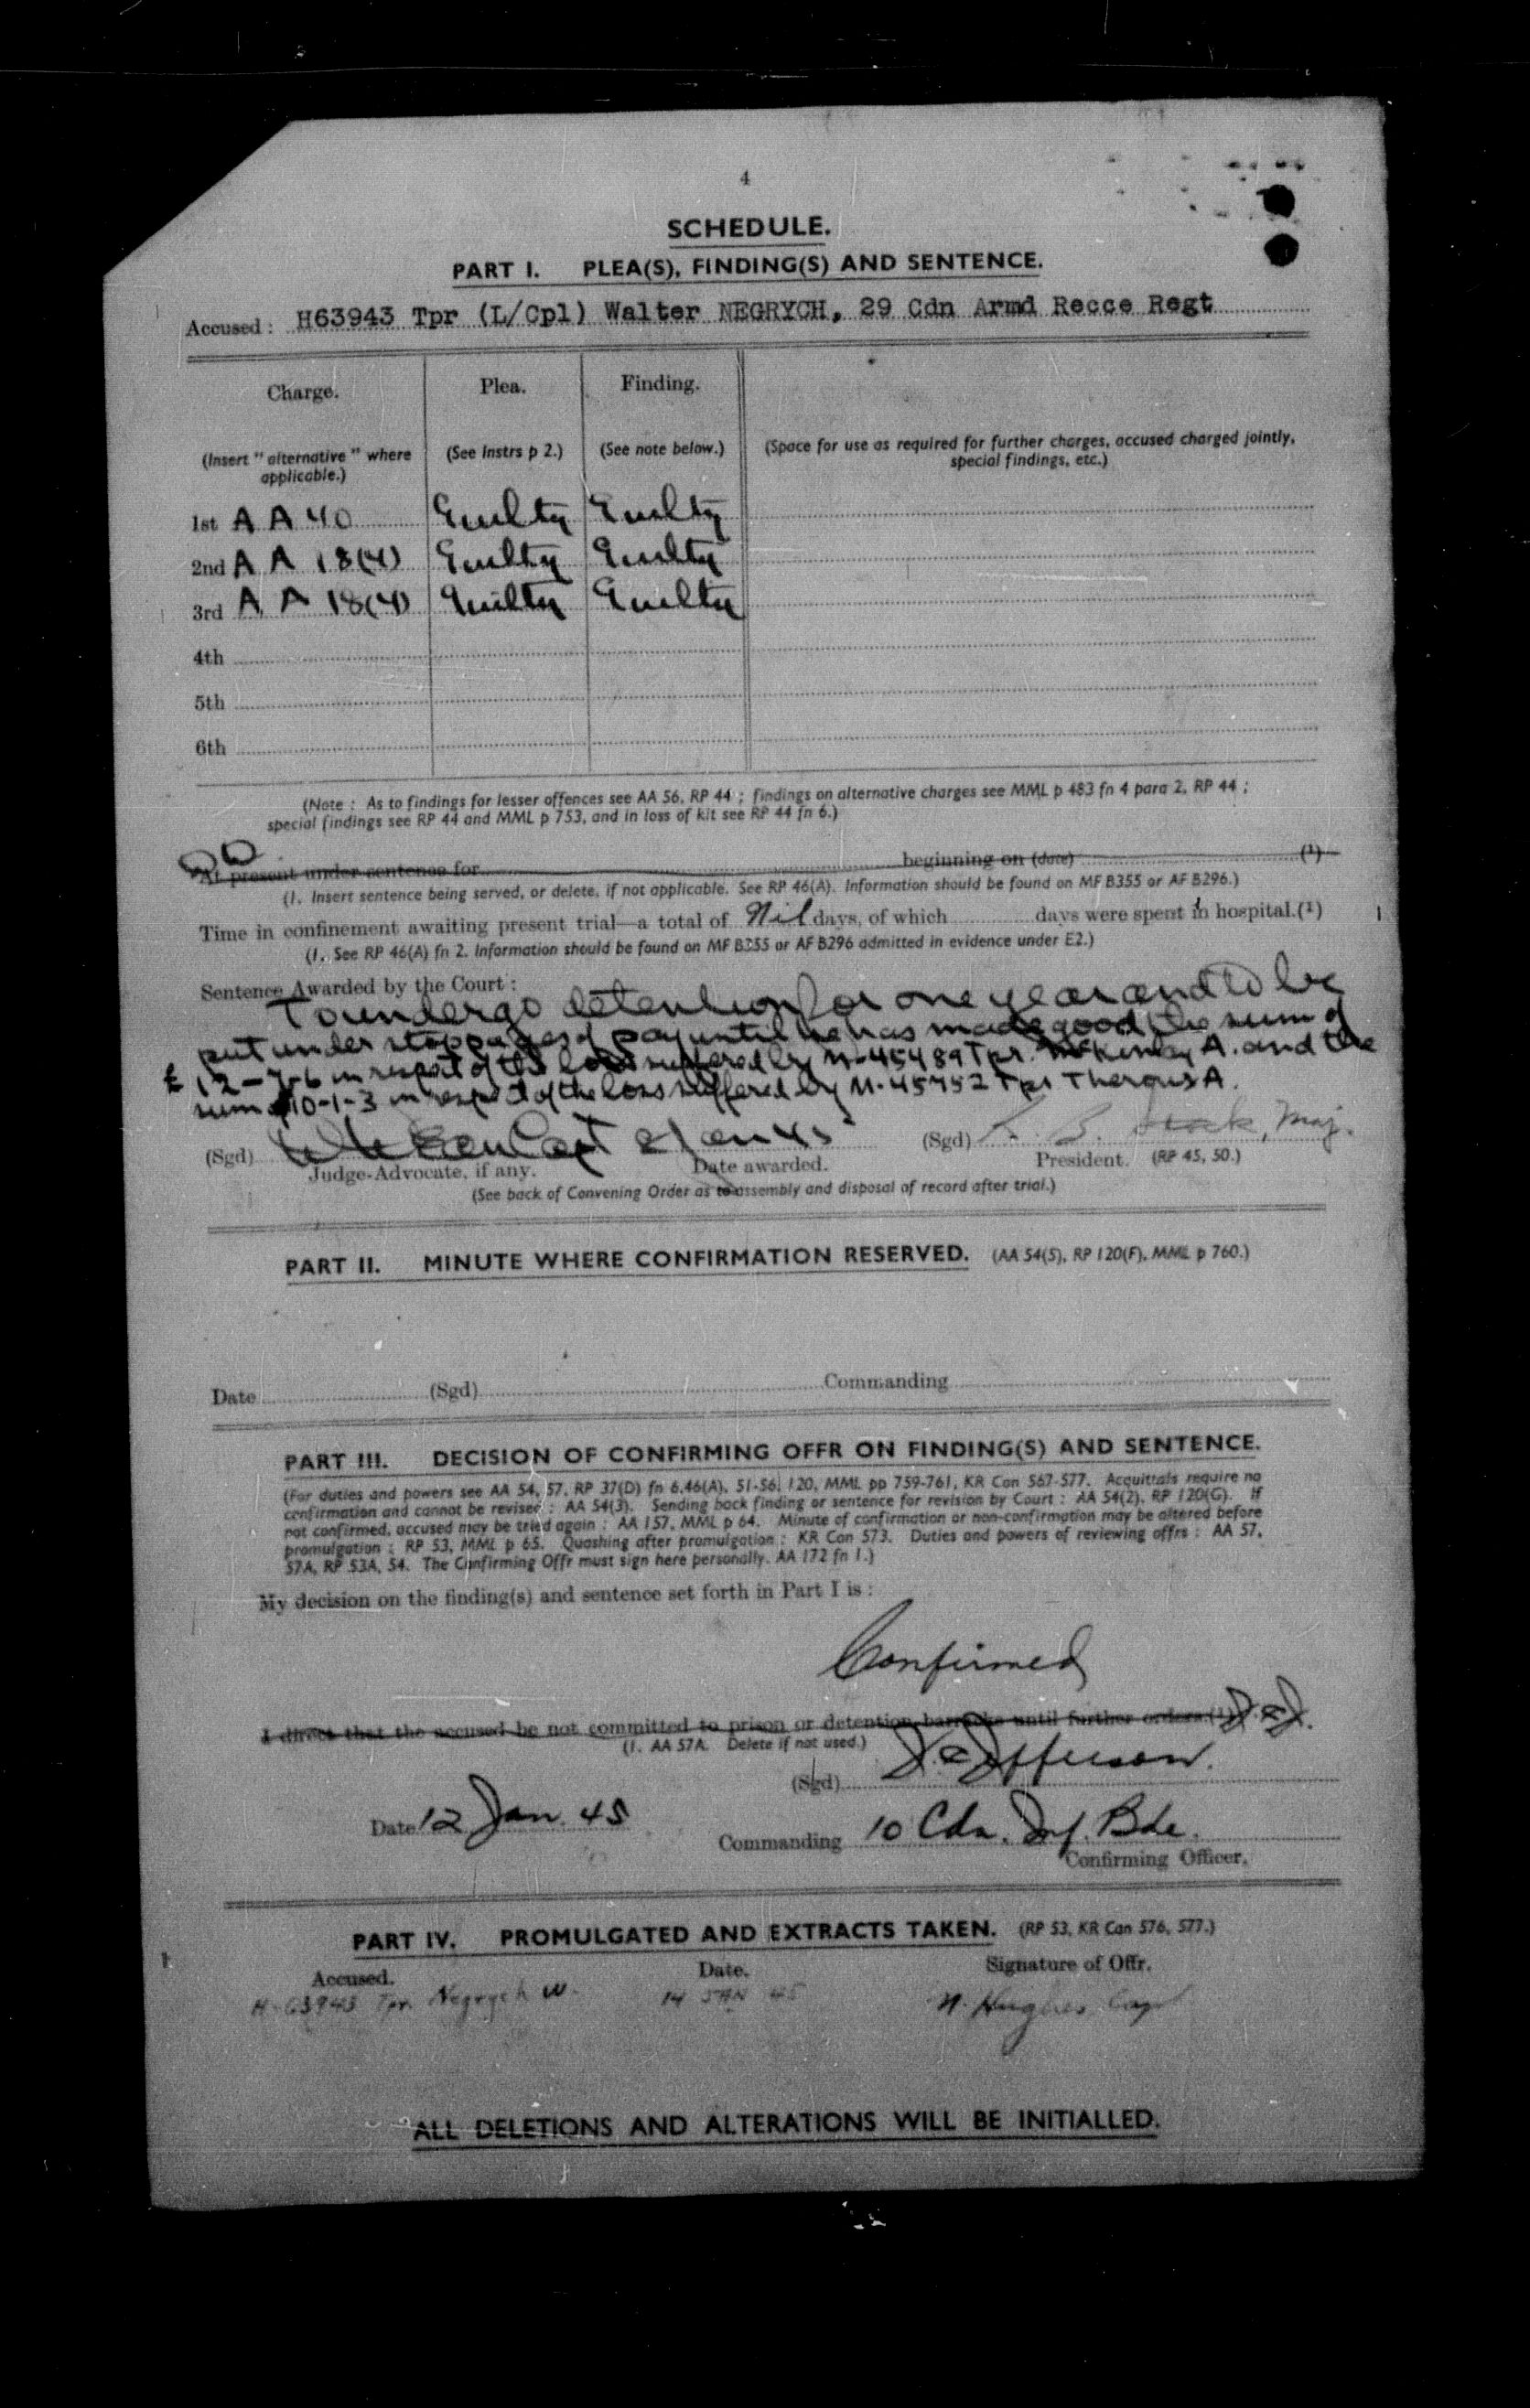 4
SCHEDULE.
PART I. PLEA(S), FINDING(S) AND SENTENCE.
Accused : H63943 Tpr (L/Cpl) Walter NEGRYCH, 29 Cdn Armd Recce Regt
Charge. Plea. Finding.
(Insert "alternative" where applicable.) (See Instrs p 2.) (See note below.) (Space for use as required for further charges, accused charged jointly, special findings, etc.)
1st A A 40 Guilty Guilty
2nd A A 18(4) Guilty Guilty
3rd A A 18(4) Guilty Guilty
4th
5th
6th
(Note : As to findings for lesser offences see AA 56, RP 44 ; findings on alternative charges see MML p 483 fn 4 para 2, RP 44 ;
special findings see RP 44 and MML p 753, and in loss of kit see RP 44 fn 6.)
At present under sentence for beginning on (date) (1)
(1. Insert sentence being served, or delete, if not applicable. See RP 46(A). Information should be found on MF B355 or AF B296.)
Time in confinement awaiting present trial—a total of Nil days, of which days were spent in hospital.(1)
(1. See RP 46(A) fn 2. Information should be found on MF B355 or AF B296 admitted in evidence under E2.)
Sentence Awarded by the Court :
To undergo detention for one year and to be
put under stoppages of pay until he has made good the sum of
£ 12-7-6 in respect of the loss suffered by M-45489 Tpr. McKinley A. and the
sum of 10-1-3 in respect of the loss suffered by M-45752 Tpr A.
(Sgd) Capt 8 Jan 45 (Sgd) Maj.
Judge-Advocate, if any. Date awarded. President. (RP 45, 50.)
(See back of Convening Order as to assembly and disposal of record after trial.)
PART II. MINUTE WHERE CONFIRMATION RESERVED. (AA 54(5), RP 120(F), MML p 760.)
Date (Sgd) Commanding
PART III. DECISION OF CONFIRMING OFFR ON FINDING(S) AND SENTENCE.
(For duties and powers see AA 54, 57, RP 37(D) fn 6,46(A), 51-56, 120, MML pp 759-761, KR Can 567-577. Acquittals require no
confirmation and cannot be revised : AA 54(3). Sending back finding or sentence for revision by Court : AA 54(2), RP 120(G). If
not confirmed, accused may be tried again : AA 157, MML p 64. Minute of confirmation or non-confirmation may be altered before
promulgation : RP 53, MML p 65. Quashing after promulgation : KR Can 573. Duties and powers of reviewing offrs : AA 57,
57A, RP 53A, 54. The Confirming Offr must sign here personally. AA 172 fn 1.)
My decision on the finding(s) and sentence set forth in Part I is :
Confirmed
I direct that the accused be not committed to prison or detention barracks until further orders.(1) J.C.J.
(1. AA 57A. Delete if not used.)
(Sgd) J.C. Jefferson.
Date 12 Jan. 45 Commanding 10 Cdn. Inf. Bde.
Confirming Officer.
PART IV. PROMULGATED AND EXTRACTS TAKEN. (RP 53, KR Can 576, 577.)
Accused. Date. Signature of Offr.
H-63943 Tpr. Negrych W. 14 JAN 45 Hughes Capt
ALL DELETIONS AND ALTERATIONS WILL BE INITIALLED.